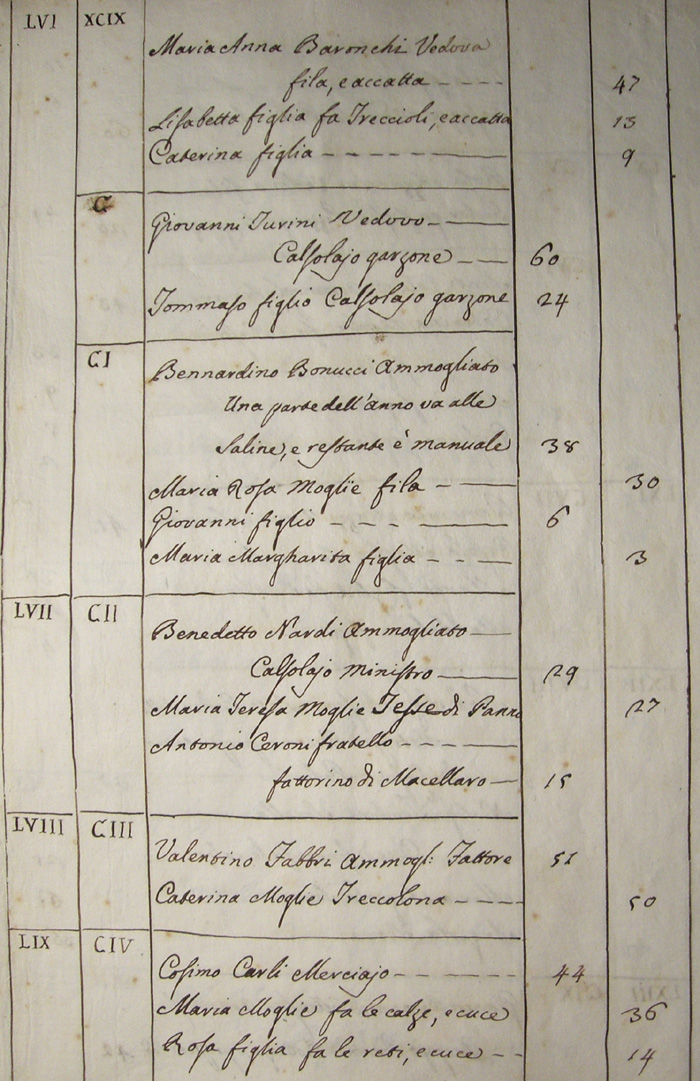 LVI XCIX
Maria Anna Baronchi Vedova
fila, e accatta - - - - 47
Lisabetta figlia fa Treccioli, e accatta 13
Caterina figlia - - - - — 9
C
Giovanni Turini Vedovo - —
Calsolajo garzone - - — 60
Tommaso figlio Calsolajo garzone 24
CI
Bennardino Bonucci Ammogliato
Una parte dell'anno va alle
Saline, e restante è manuale 38
Maria Rosa Moglie fila - — 30
Giovanni figlio - - - - — 6
Maria Margharita figlia - - — 3
LVII CII
Benedetto Nardi Ammogliato —
Calsolajo Ministro - — 29
Maria Teresa Moglie Tesse di Panno 27
Antonio Ceroni fratello - - - - —
fattorino di Macellaro — 15
LVIII CIII
Valentino Fabbri Ammogl: Fattore 51
Caterina Moglie Treccolona - - - — 50
LIX CIV
Cosimo Carli Merciajo - - - — 44
Maria Moglie fa le calze, e cuce 36
Rosa figlia fa le reti, e cuce - - 14